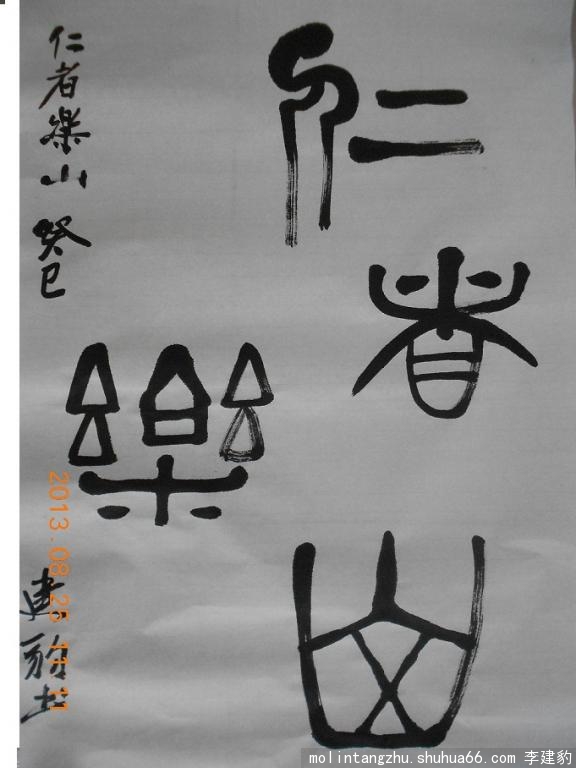 仁者樂山
仁者樂山 癸巳
建豹书
2013.08.25 11:11
molintangzhu.shuhua66.com 李建豹